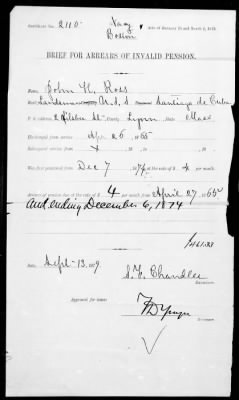 Certificate No. 2110
Navy
Boston
Acts of January 25 and March 3, 1879.
BRIEF FOR ARREARS OF INVALID PENSION.
Name, John H. Ross
Landsman U.S.S. Santiago de Cuba
P. O. address, 2 St County, Lynn State, Mass
Discharged from service Apr 26 1865
Re-enlisted service X, 18
Was first pensioned from Dec 7 1874, at $ 4 per month.
Arrears of pension due at the rate of $ 4 per month from April 27 1865
and ending December 6, 1874
$461.33
Date, Sept. 13. 1879
Chandler
Examiner.
Approved for issue:
Reviewer.